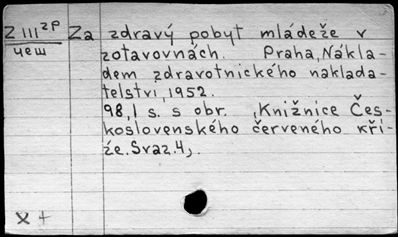 Z III 2P
чеш
Za zdravý pobyt mládeže v
zotavovnách. Praha, Nákla-
dem zdravotnického naklada-
telství, 1952.
98,1 s. s obr. (Knižnice Čes-
koslovenského červeného kří-
že. Svaz. 4).
X +